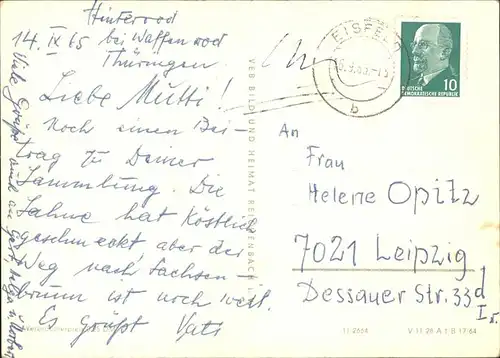 Hinterrod
14. IX 65 bei Waffenrod
Thüringen
Liebe Mutti!
Noch einen Bei-
trag zu Deiner
Sammlung. Die
Sahne hat köstlich
geschmeckt, aber der
Weg nach Sachsen-
brunn ist noch weit.
Es grüßt Vati
Viele Grüße auch an
VEB BILD UND HEIMAT REICHENBACH
EISFELD
b
10
DEUTSCHE
DEMOKRATISCHE REPUBLIK
An
Frau
Helene Opitz
7021 Leipzig
Dessauer Str. 33d
I r.
V 11 28 A 1 B 17/64